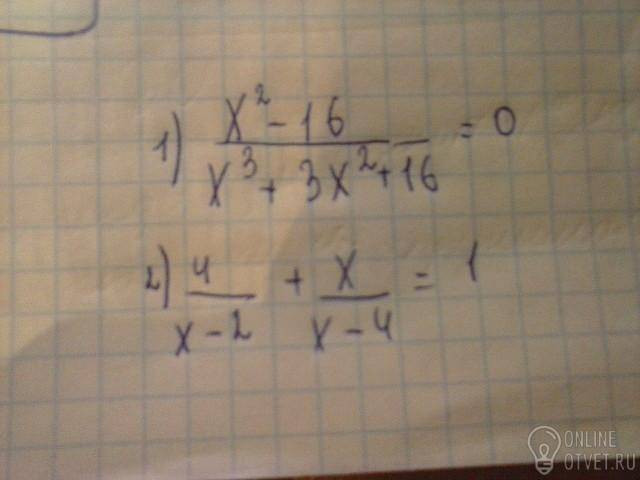 1) x² - 16 / x³ + 3x² + 16 = 0
2) 4 / x - 2 + x / x - 4 = 1
ONLINE
OTVET.RU